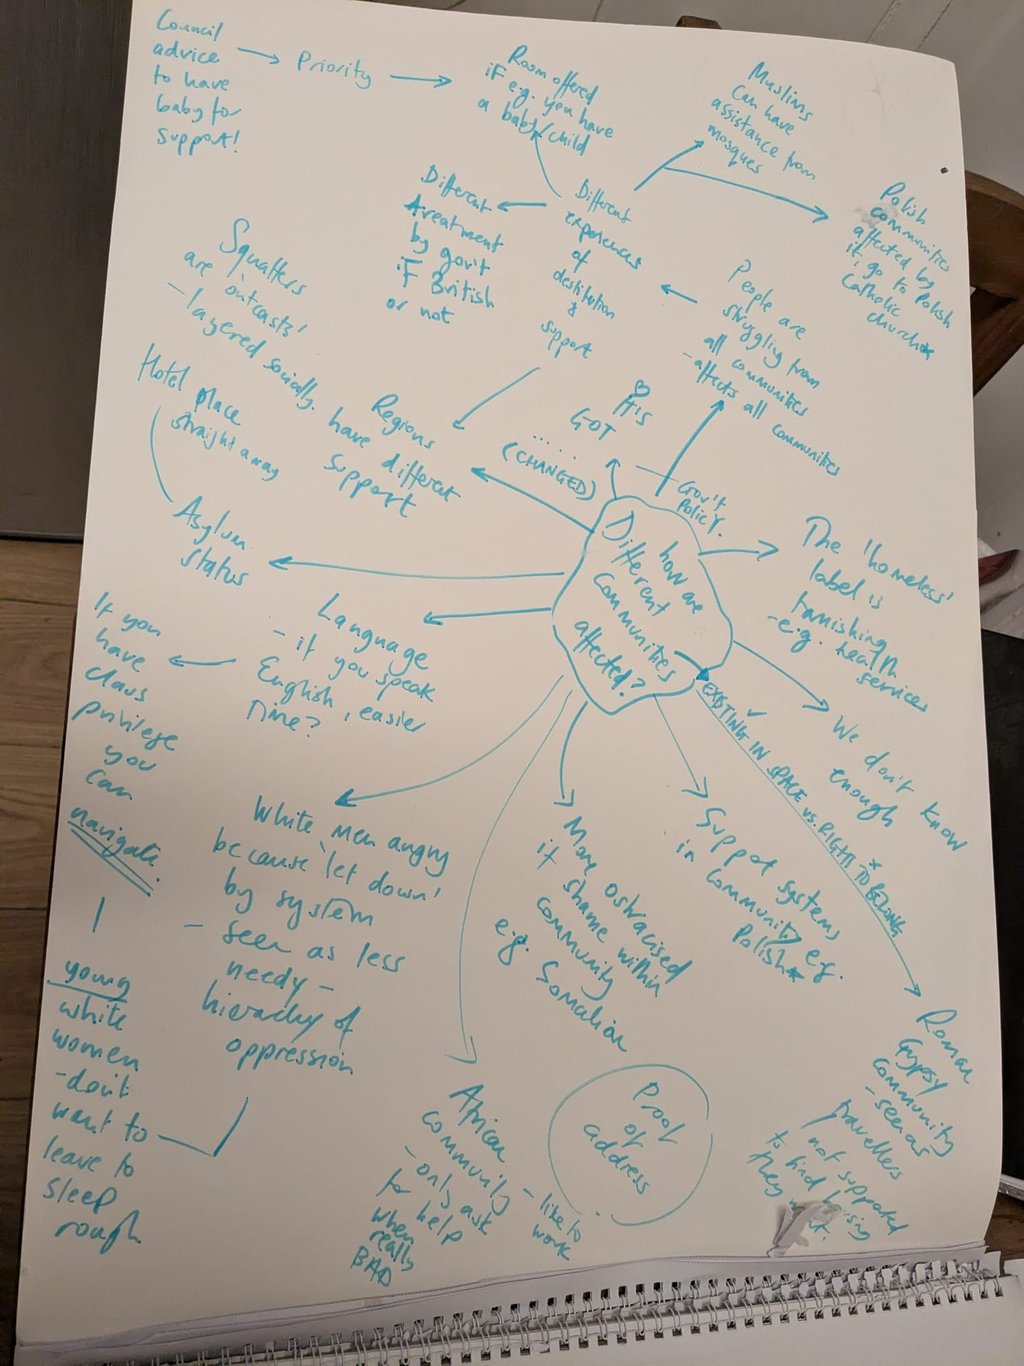 Council
advice
to have
baby for
support!
Priority
Room offered
if e.g. you have
a baby/child
Muslims
Can have
assistance from
mosques
Polish
communities
affected by
if go to Polish
Catholic
church
Different
treatment
by gov't
if British
or not
Different
experiences
of
destitution
&
support
People are
struggling from
all communities
- affects all
communities
Squatters
are 'outcasts'
- layered socially.
Hotel place
straight away
Regions
have different
support
HIS
GOT
....
(CHANGED)
Gov't
Policy.
How are
Different
Communities
affected?
The 'homeless'
label is
tarnishing
- e.g. health
services
Asylum
status
Language
- if you speak
English, easier
time?
If you
have
class
privilege
you
can
navigate.
EXISTING IN SPACE vs. RIGHT TO BELONG
We don't know
enough
White men angry
because 'let down'
by system
- seen as less
needy -
hierachy of
oppression
More ostracised
if shame within
community
e.g. Somalian
Support systems
in community e.g.
Polish
young
white
women
- don't
want to
leave to
sleep
rough
African
community
- only ask
for help
when
really
BAD
- like to
work
Proof
of
address
Roman
Gypsy
community
- seen as
travellers
not supported
to find housing
they